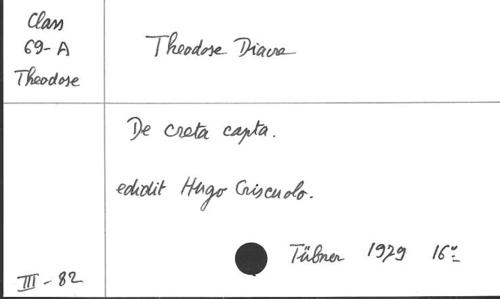 Class
69-A
Theodose
Theodose Diacre
De creta capta.
edidit Hugo Criscuolo.
Tübner 1979 16°
III - 82